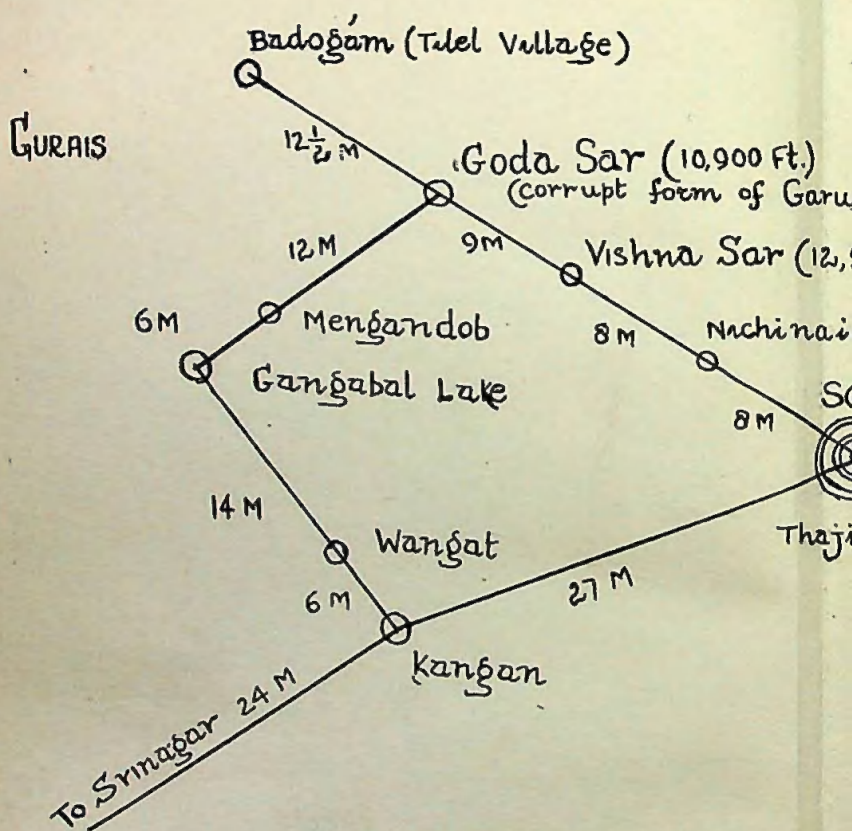 Badogám (Tilel Village)
GURAIS
12½ M
Goda Sar (10,900 Ft.)
(corrupt form of Garu
12 M
9 M
Vishna Sar (12,9
6 M
Mengandob
8 M
Nichinai
Gangabal Lake
8 M
14 M
Wangat
Thaji
6 M
27 M
Kangan
To Srinagar 24 M